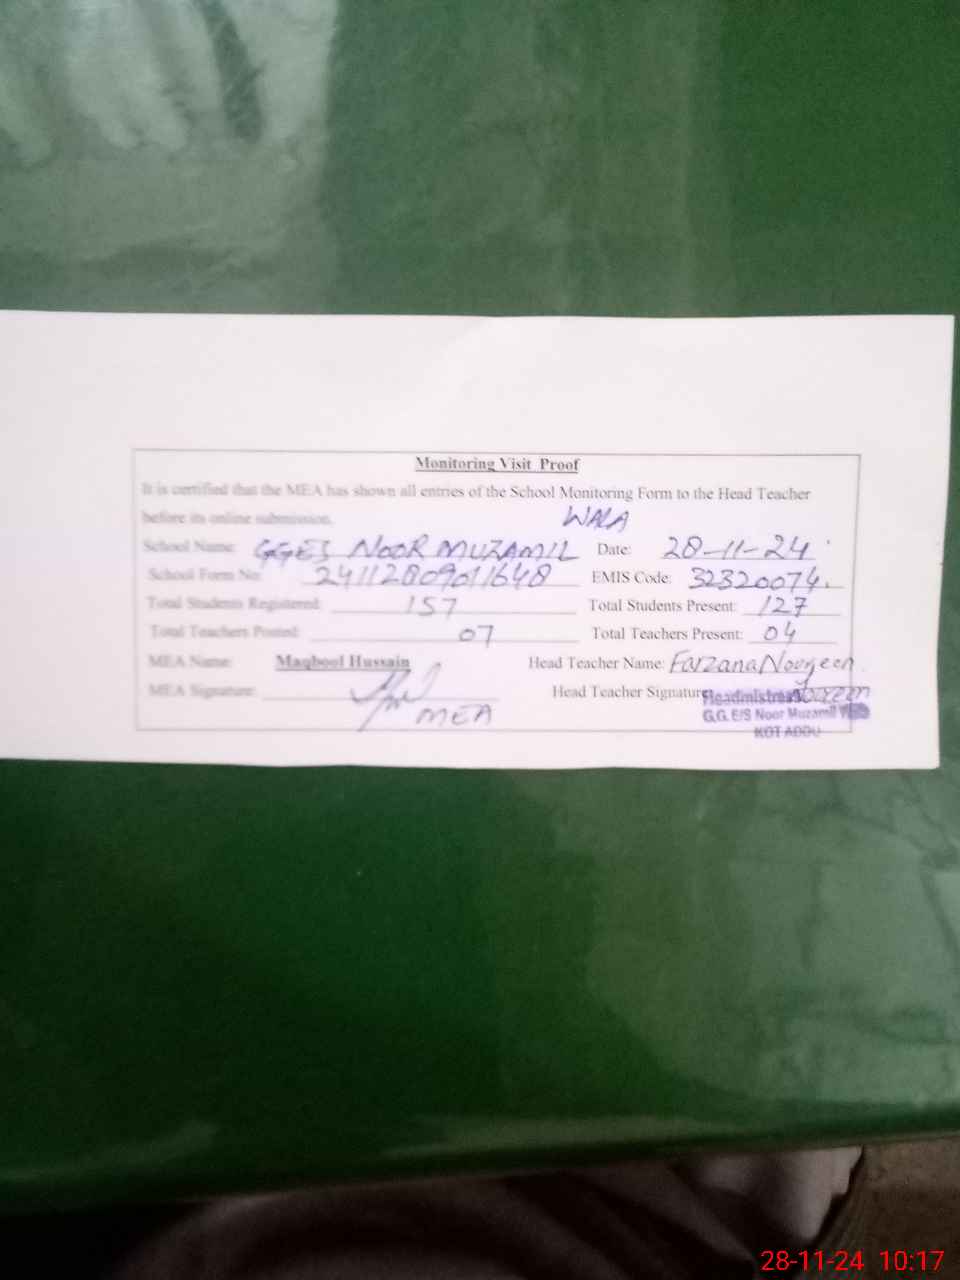 Monitoring Visit Proof
It is certified that the MEA has shown all entries of the School Monitoring Form to the Head Teacher
before its online submission.
WALA
School Name: GGES NOOR MUZAMIL Date: 28-11-24
School Form No: 24112809011648 EMIS Code: 32320074.
Total Students Registered: 157 Total Students Present: 127
Total Teachers Posted: 07 Total Teachers Present: 04
MEA Name: Maqbool Hussain Head Teacher Name: Farzana Noureen
MEA Signature: Head Teacher Signature:
MEA
Headmistress
G.G. E/S Noor Muzamil
KOT ADDU
28-11-24 10:17